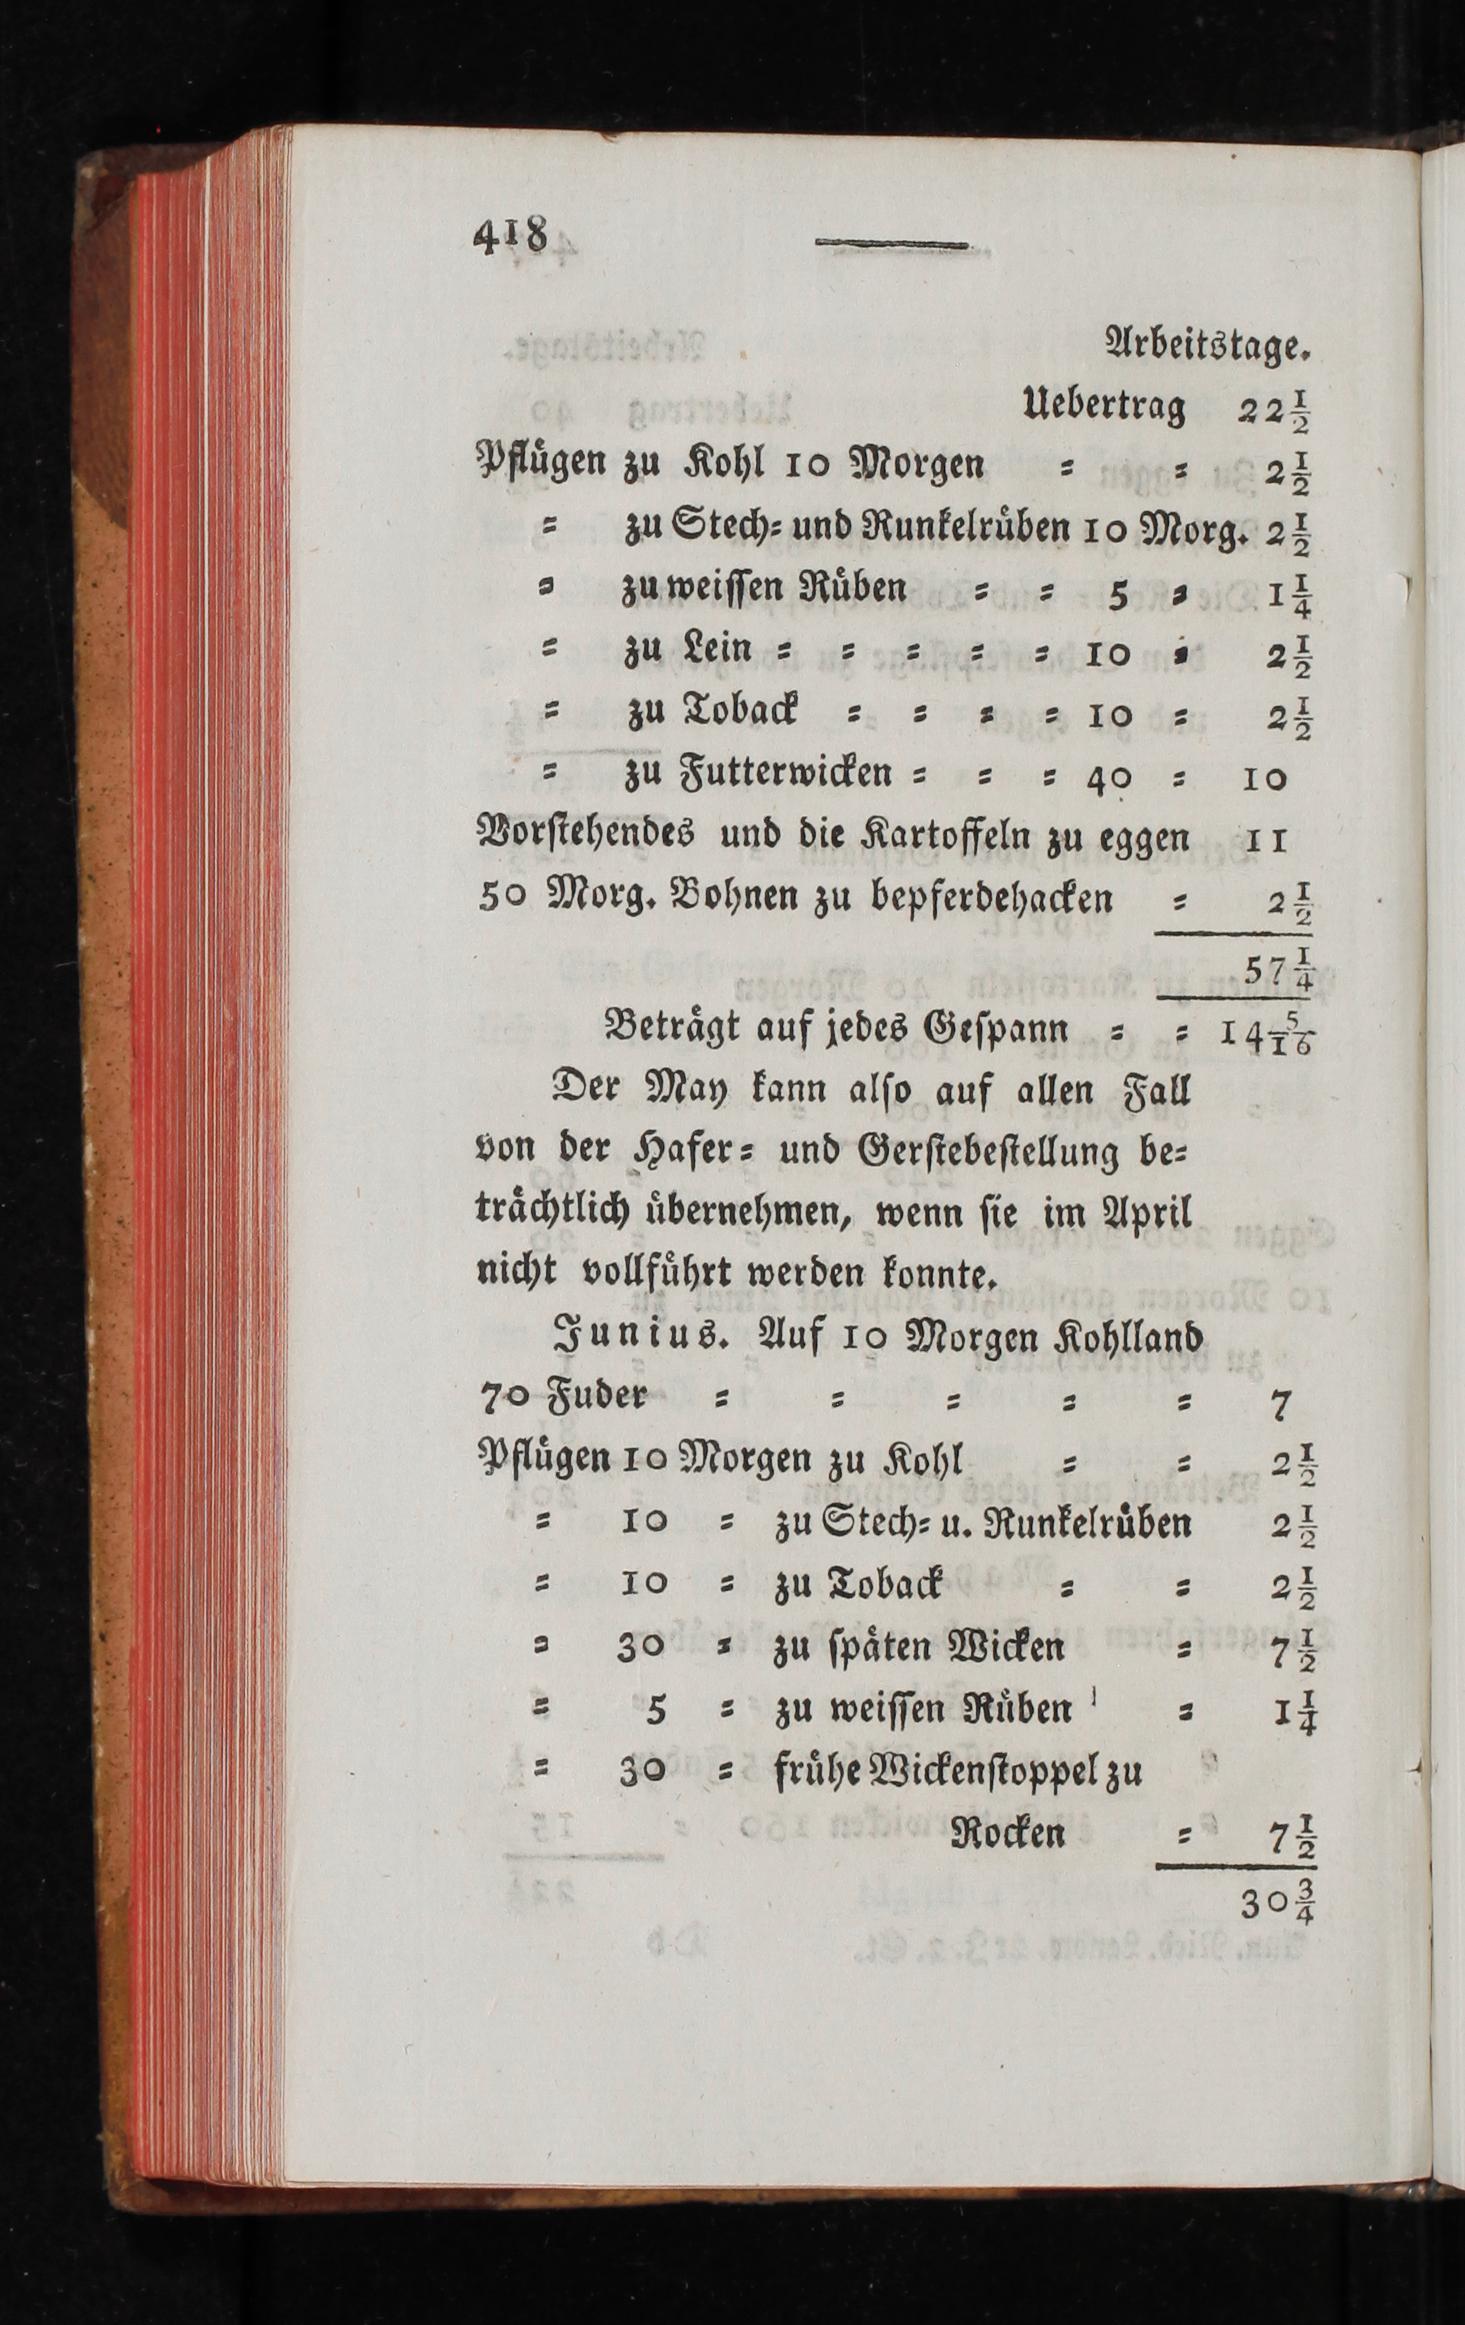 418
Arbeitstage.
Uebertrag 22½
Pflügen zu Kohl 10 Morgen = = 2½
= zu Stech= und Runkelrüben 10 Morg. 2½
= zu weiſſen Rüben = = 5 = 1¼
= zu Lein = = = = = 10 = 2½
= zu Toback = = = = 10 = 2½
= zu Futterwicken = = = 40 = 10
Vorſtehendes und die Kartoffeln zu eggen 11
50 Morg. Bohnen zu bepferdehacken = 2½
57¼
Beträgt auf jedes Geſpann = = 14 5/16
Der May kann alſo auf allen Fall
von der Hafer= und Gerſtebeſtellung be=
trächtlich übernehmen, wenn ſie im April
nicht vollführt werden konnte.
Junius. Auf 10 Morgen Kohlland
70 Fuder = = = = = 7
Pflügen 10 Morgen zu Kohl = = 2½
= 10 = zu Stech= u. Runkelrüben 2½
= 10 = zu Toback = = 2½
= 30 = zu ſpäten Wicken = 7½
= 5 = zu weiſſen Rüben = 1¼
= 30 = frühe Wickenſtoppel zu
Rocken = 7½
30¾